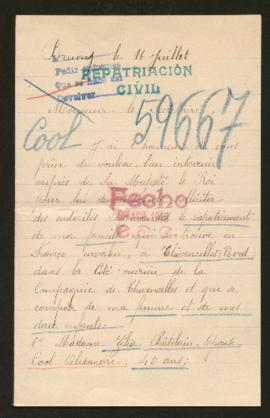 le 16 juillet
REPATRIACIÓN
CIVIL
Pedir
Devolver
Monsieur le
59667
Cool
J'ai l'honneur de vous
prier de vouloir bien intervenir
auprès de Sa Majesté le Roi
pour lui
des autorités le rapatriement
Fecho
de ma famille qui se trouve en
France envahie, à Thivencelles (Nord)
dans la Cité minière de la
Compagnie de Thivencelles et qui se
compose de ma femme et de mes
deux enfants.
1° Madame Zélia Châtelain, épouse
Cool Alexandre, 40 ans;